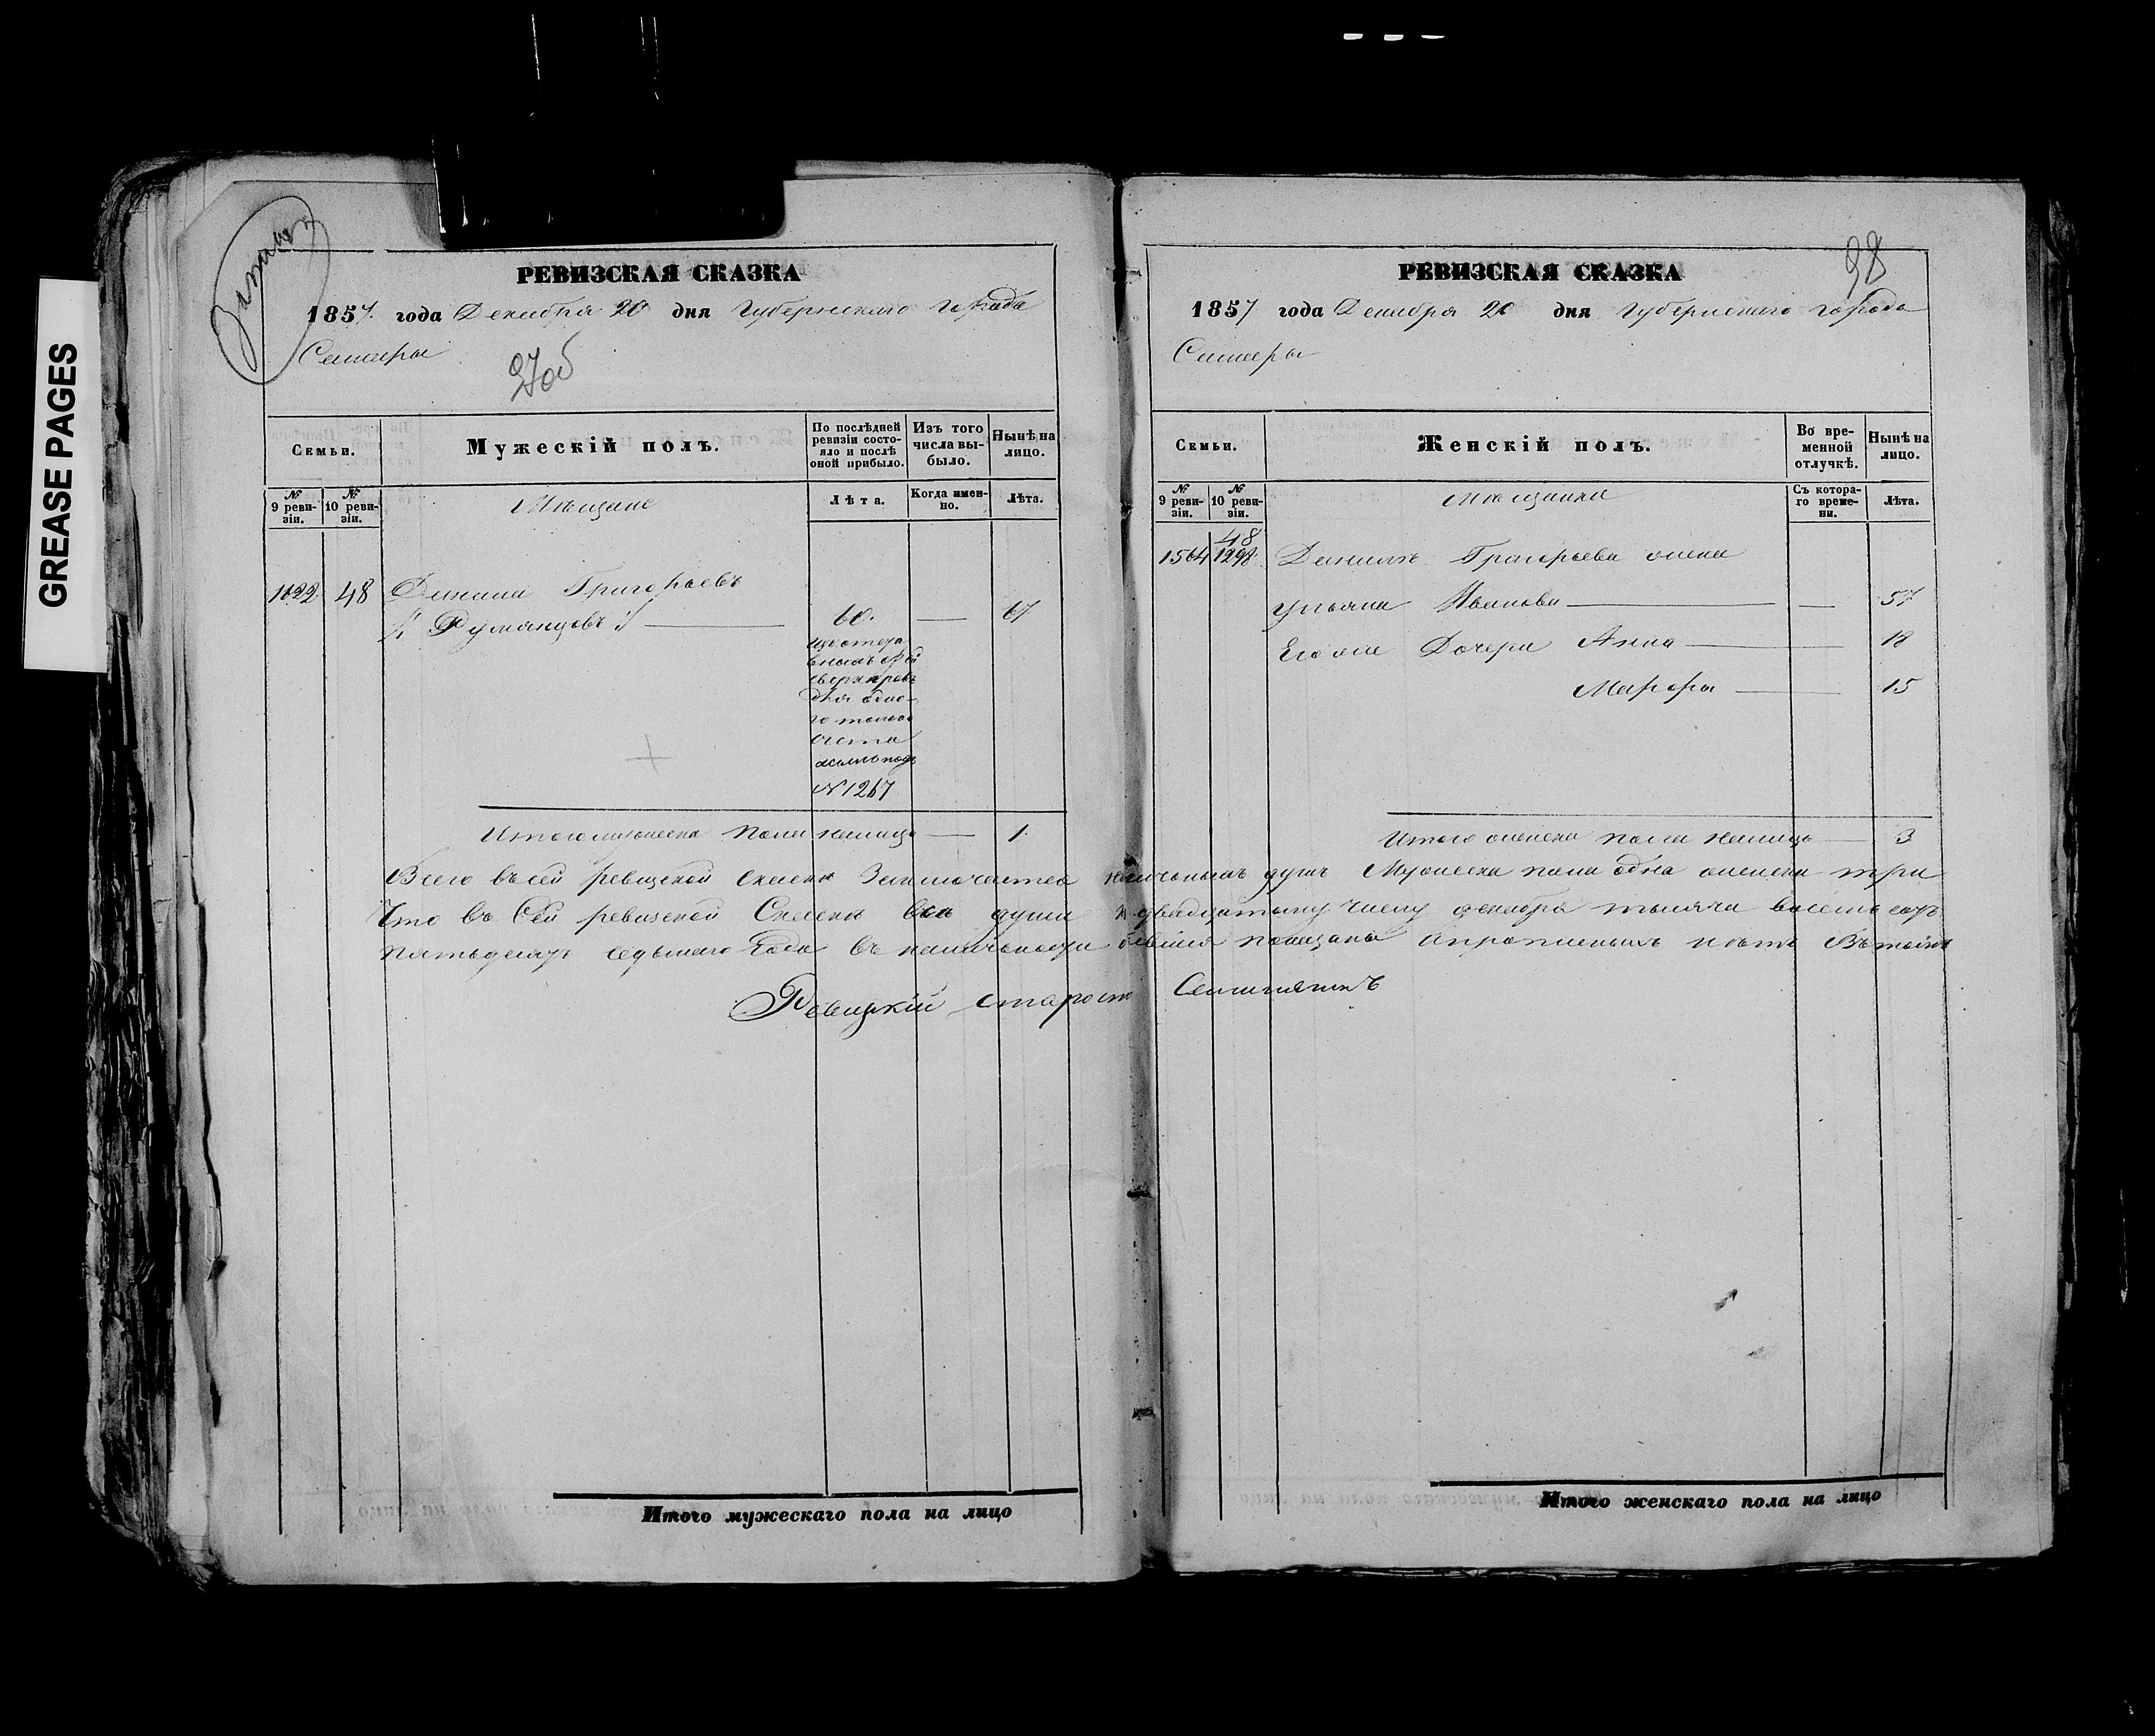 GREASE PAGES
РЕВИЗСКАЯ СКАЗКА
1857. года Декабря 20 дня Губернскаго города
Самары
97об
Семьи.
Мужескій полъ.
По послѣдней ревизіи состояло и послѣ оной прибыло.
Изъ того числа выбыло.
Нынѣ на лицо.
№ 9 ревизіи.
№ 10 ревизіи.
Мѣщане
Лѣта.
Когда именно.
Лѣта.
1822 48 Данила Григорьевъ
Румянцовъ 60. 67
№ 1267
Итого мужеска пола налицо 1.
РЕВИЗСКАЯ СКАЗКА
98
1857 года Декабря 20 дня Губернскаго города
Самары
Семьи.
Женскій полъ.
Во временной отлучкѣ.
Нынѣ на лицо.
№ 9 ревизіи.
№ 10 ревизіи.
Мѣщанки
Съ котораго времени.
Лѣта.
48
1564 1298 Данилы Григорьева жена
Ульяна Иванова 57
Его же Дочери Анна 18
Марфа 15
Итого женска пола налицо 3
Всего въ сей ревизской сказкѣ Заключается наличныхъ душъ Мужеска пола одна женска три
Что въ Сей ревизской Сказкѣ всѣ души къ двадцатому числу декабря тысяча восемь сотъ
пятьдесятъ седьмаго Года въ наличности бывшія показаны и пропущенныхъ нѣтъ Въ томъ
староста
Итого мужескаго пола на лицо
Итого женскаго пола на лицо